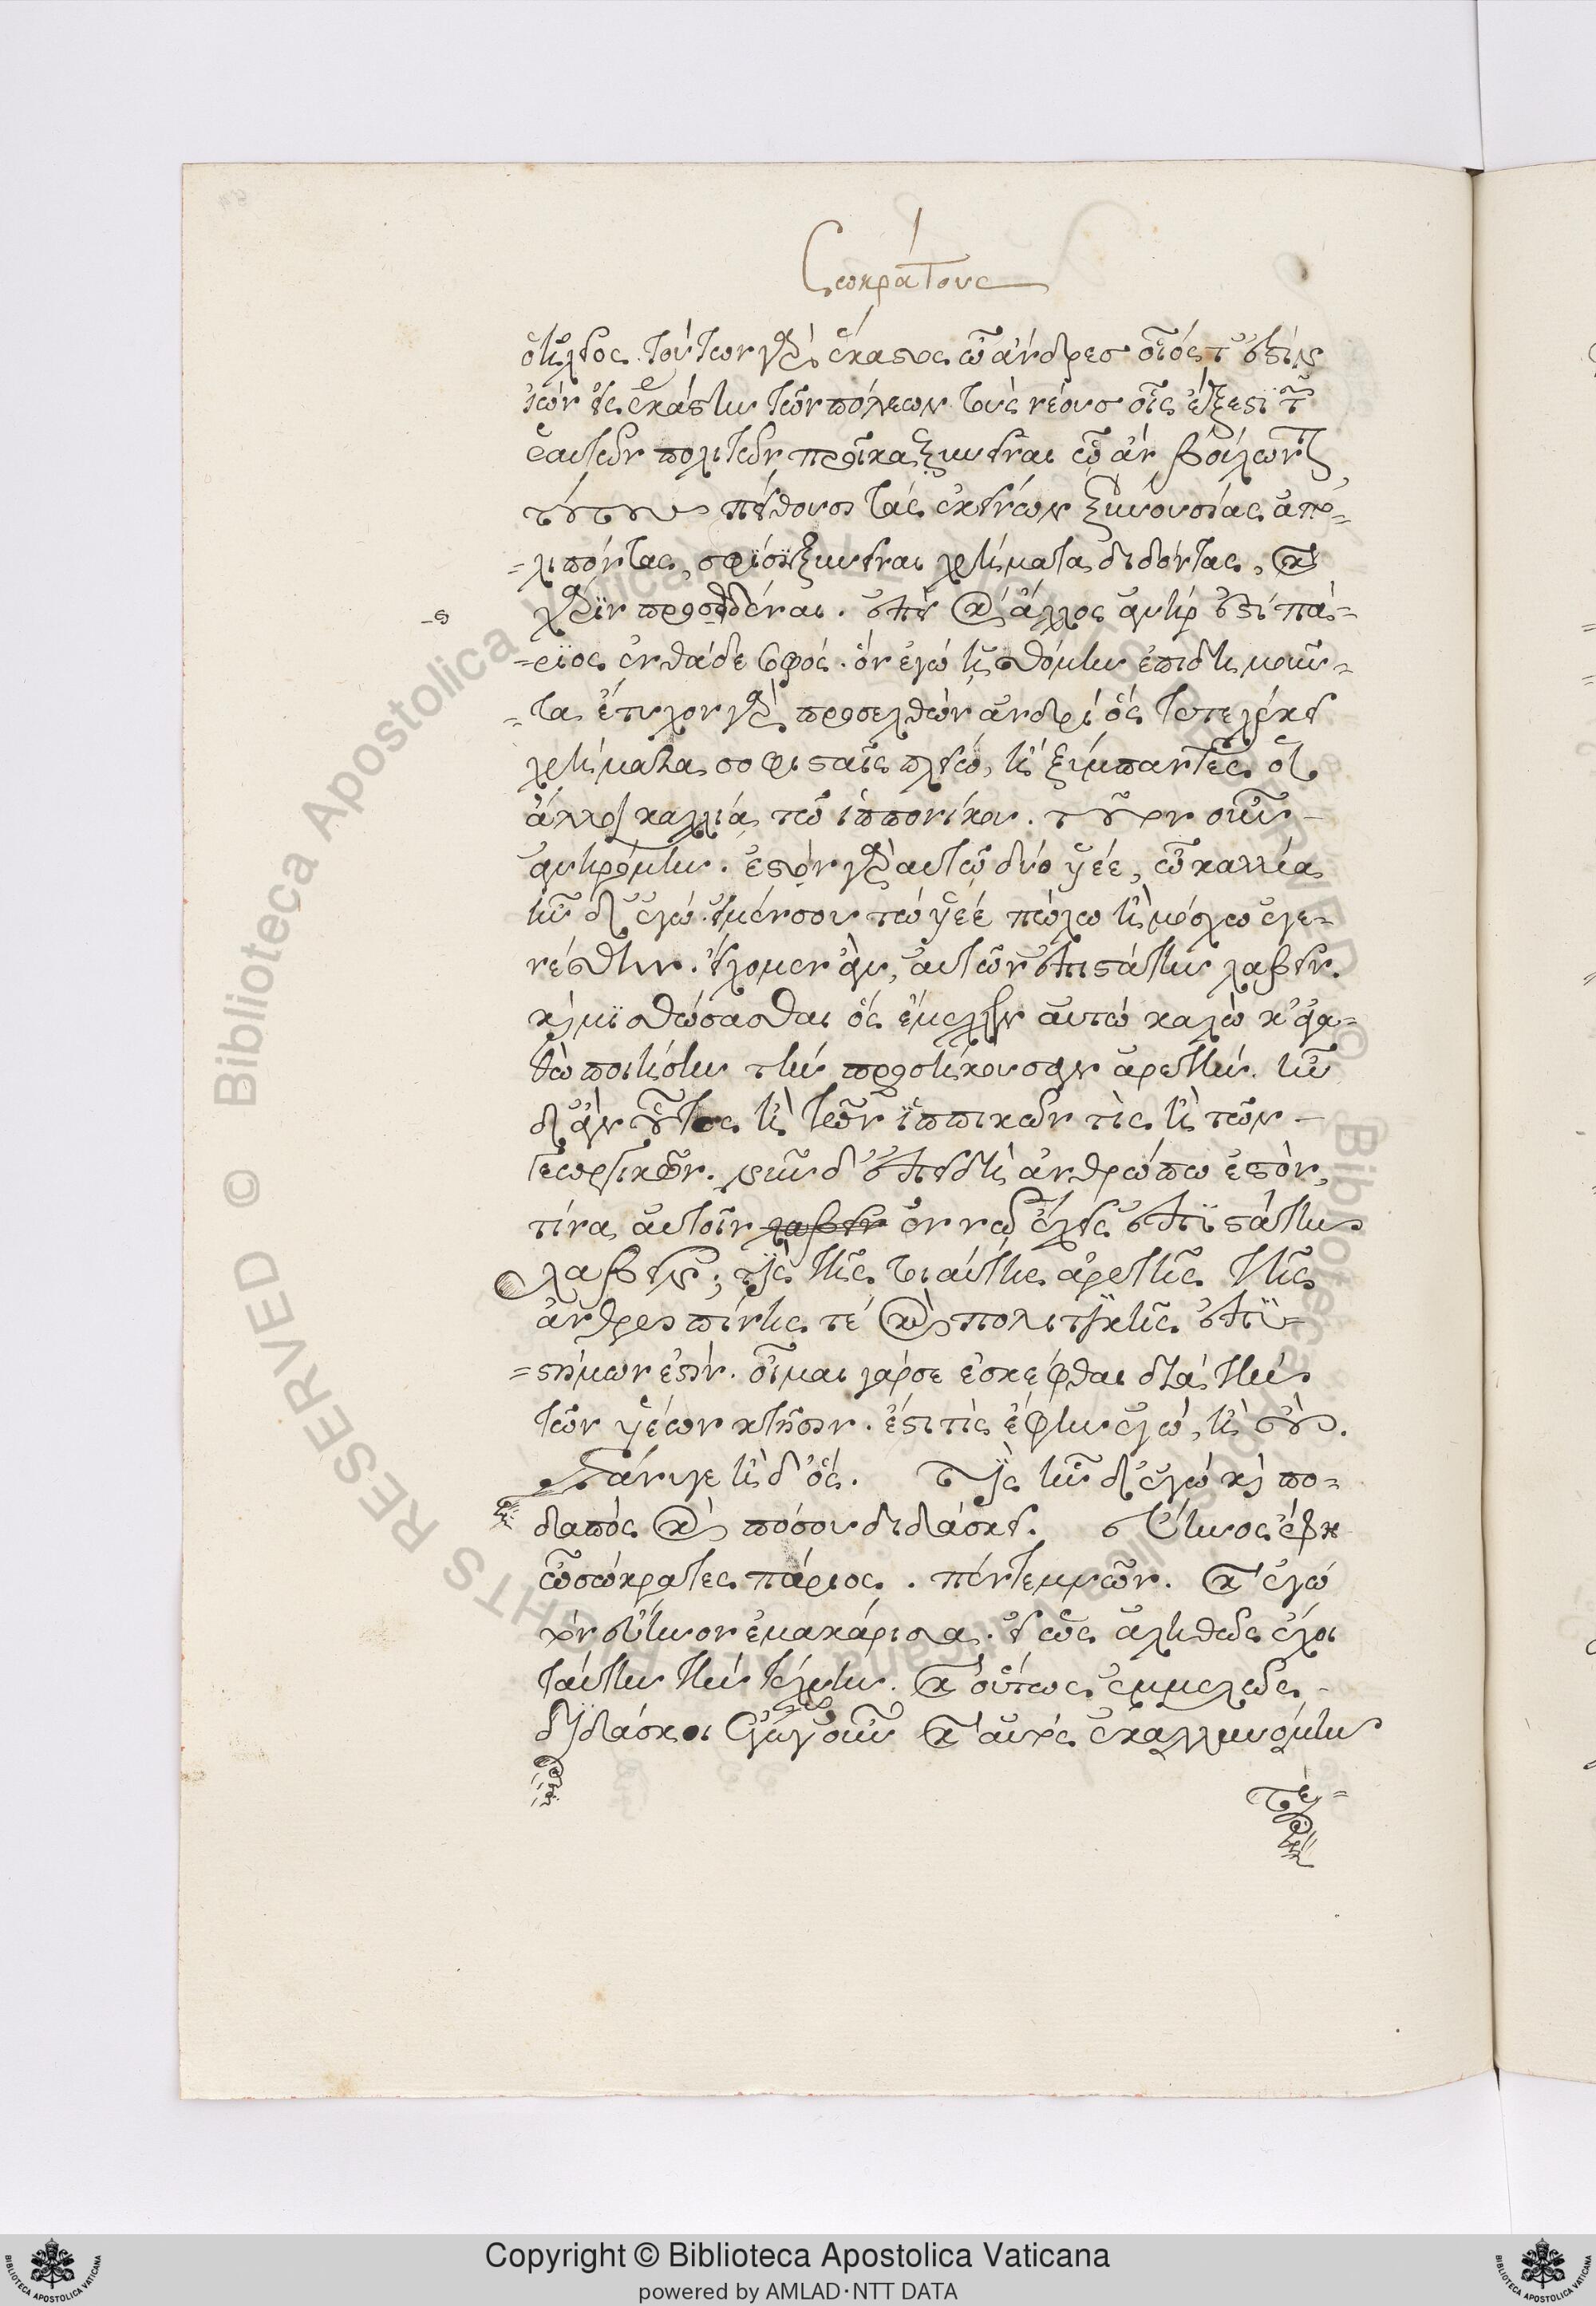 Σωκράτους
ὁ ἠλεῖος. τούτων γὰρ ἕκαστος ὦ ἄνδρες οἷός τ' ἐστὶν
ἰὼν εἰς ἑκάστην τῶν πόλεων τοὺς νέους οἷς ἔξεστι τῶν
ἑαυτῶν πολιτῶν προῖκα ξυνεῖναι ᾧ ἂν βούλωνται,
τούτους πείθουσι τὰς ἐκείνων ξυνουσίας ἀπο-
-λιπόντας, σφίσι ξυνεῖναι χρήματα διδόντας, καὶ
χάριν προσειδέναι. ἐπεὶ καὶ ἄλλος ἀνήρ ἐστι πά-
-ριος ἐνθάδε σοφός. ὃν ἐγὼ ᾐσθόμην ἐπιδημοῦν-
-τα ἔτυχον γὰρ προσελθὼν ἀνδρὶ ὃς τετέλεκε
χρήματα σοφισταῖς πλείω, ἢ ξύμπαντες οἱ
ἄλλοι καλλίᾳ τῷ ἱππονίκου. τοῦτον οὖν
ἀνηρόμην. ἐστὸν γὰρ αὐτῷ δύο ὑέε, ὦ καλλία
ἦν δ' ἐγώ. εἰ μέν σου τὼ ὑέε πώλω ἢ μόσχω ἐγε-
νέσθην. εἴχομεν ἂν, αὐτῶν ἐπιστάτην λαβεῖν.
καὶ μισθώσασθαι ὃς ἔμελλεν αὐτὼ καλὼ κἀγα-
θὼ ποιήσειν τὴν προσήκουσαν ἀρετήν. ἦν
δ' ἂν οὗτος ἢ τῶν ἱππικῶν τὶς ἢ τῶν
γεωργικῶν. νῦν δ' ἐπειδὴ ἀνθρώπω ἐστὸν,
τίνα αὐτοῖν λαβεῖν ἐν νῷ ἔχεις ἐπιστάτην
λαβεῖν; τίς τῆς τοιαύτης ἀρετῆς τῆς
ἀνθρωπίνης τέ καὶ πολιτικῆς ἐπι-
-στήμων ἐστίν. οἶμαι γάρ σε ἐσκέφθαι διὰ τὴν
τῶν ὑέων κτῆσιν. ἔστι τὶς ἔφην ἐγώ, ἢ οὔ.
Πάνυ γε ἦ δ' ὅς. τίς ἦν δ' ἐγὼ καὶ πο-
δαπός καὶ πόσου διδάσκει. εὔηνος ἔφη
ὦ σώκρατες πάριος. πέντε μνῶν. καὶ ἐγὼ
τὸν εὔηνον ἐμακάρισα. εἰ ὡς ἀληθῶς ἔχοι
ταύτην τὴν τέχνην. καὶ οὕτως ἐμμελῶς
διδάσκοι ἐγὼ γοῦν καὶ αὐτὸς ἐκαλλυνόμην
τε-
Copyright © Biblioteca Apostolica Vaticana
powered by AMLAD·NTT DATA